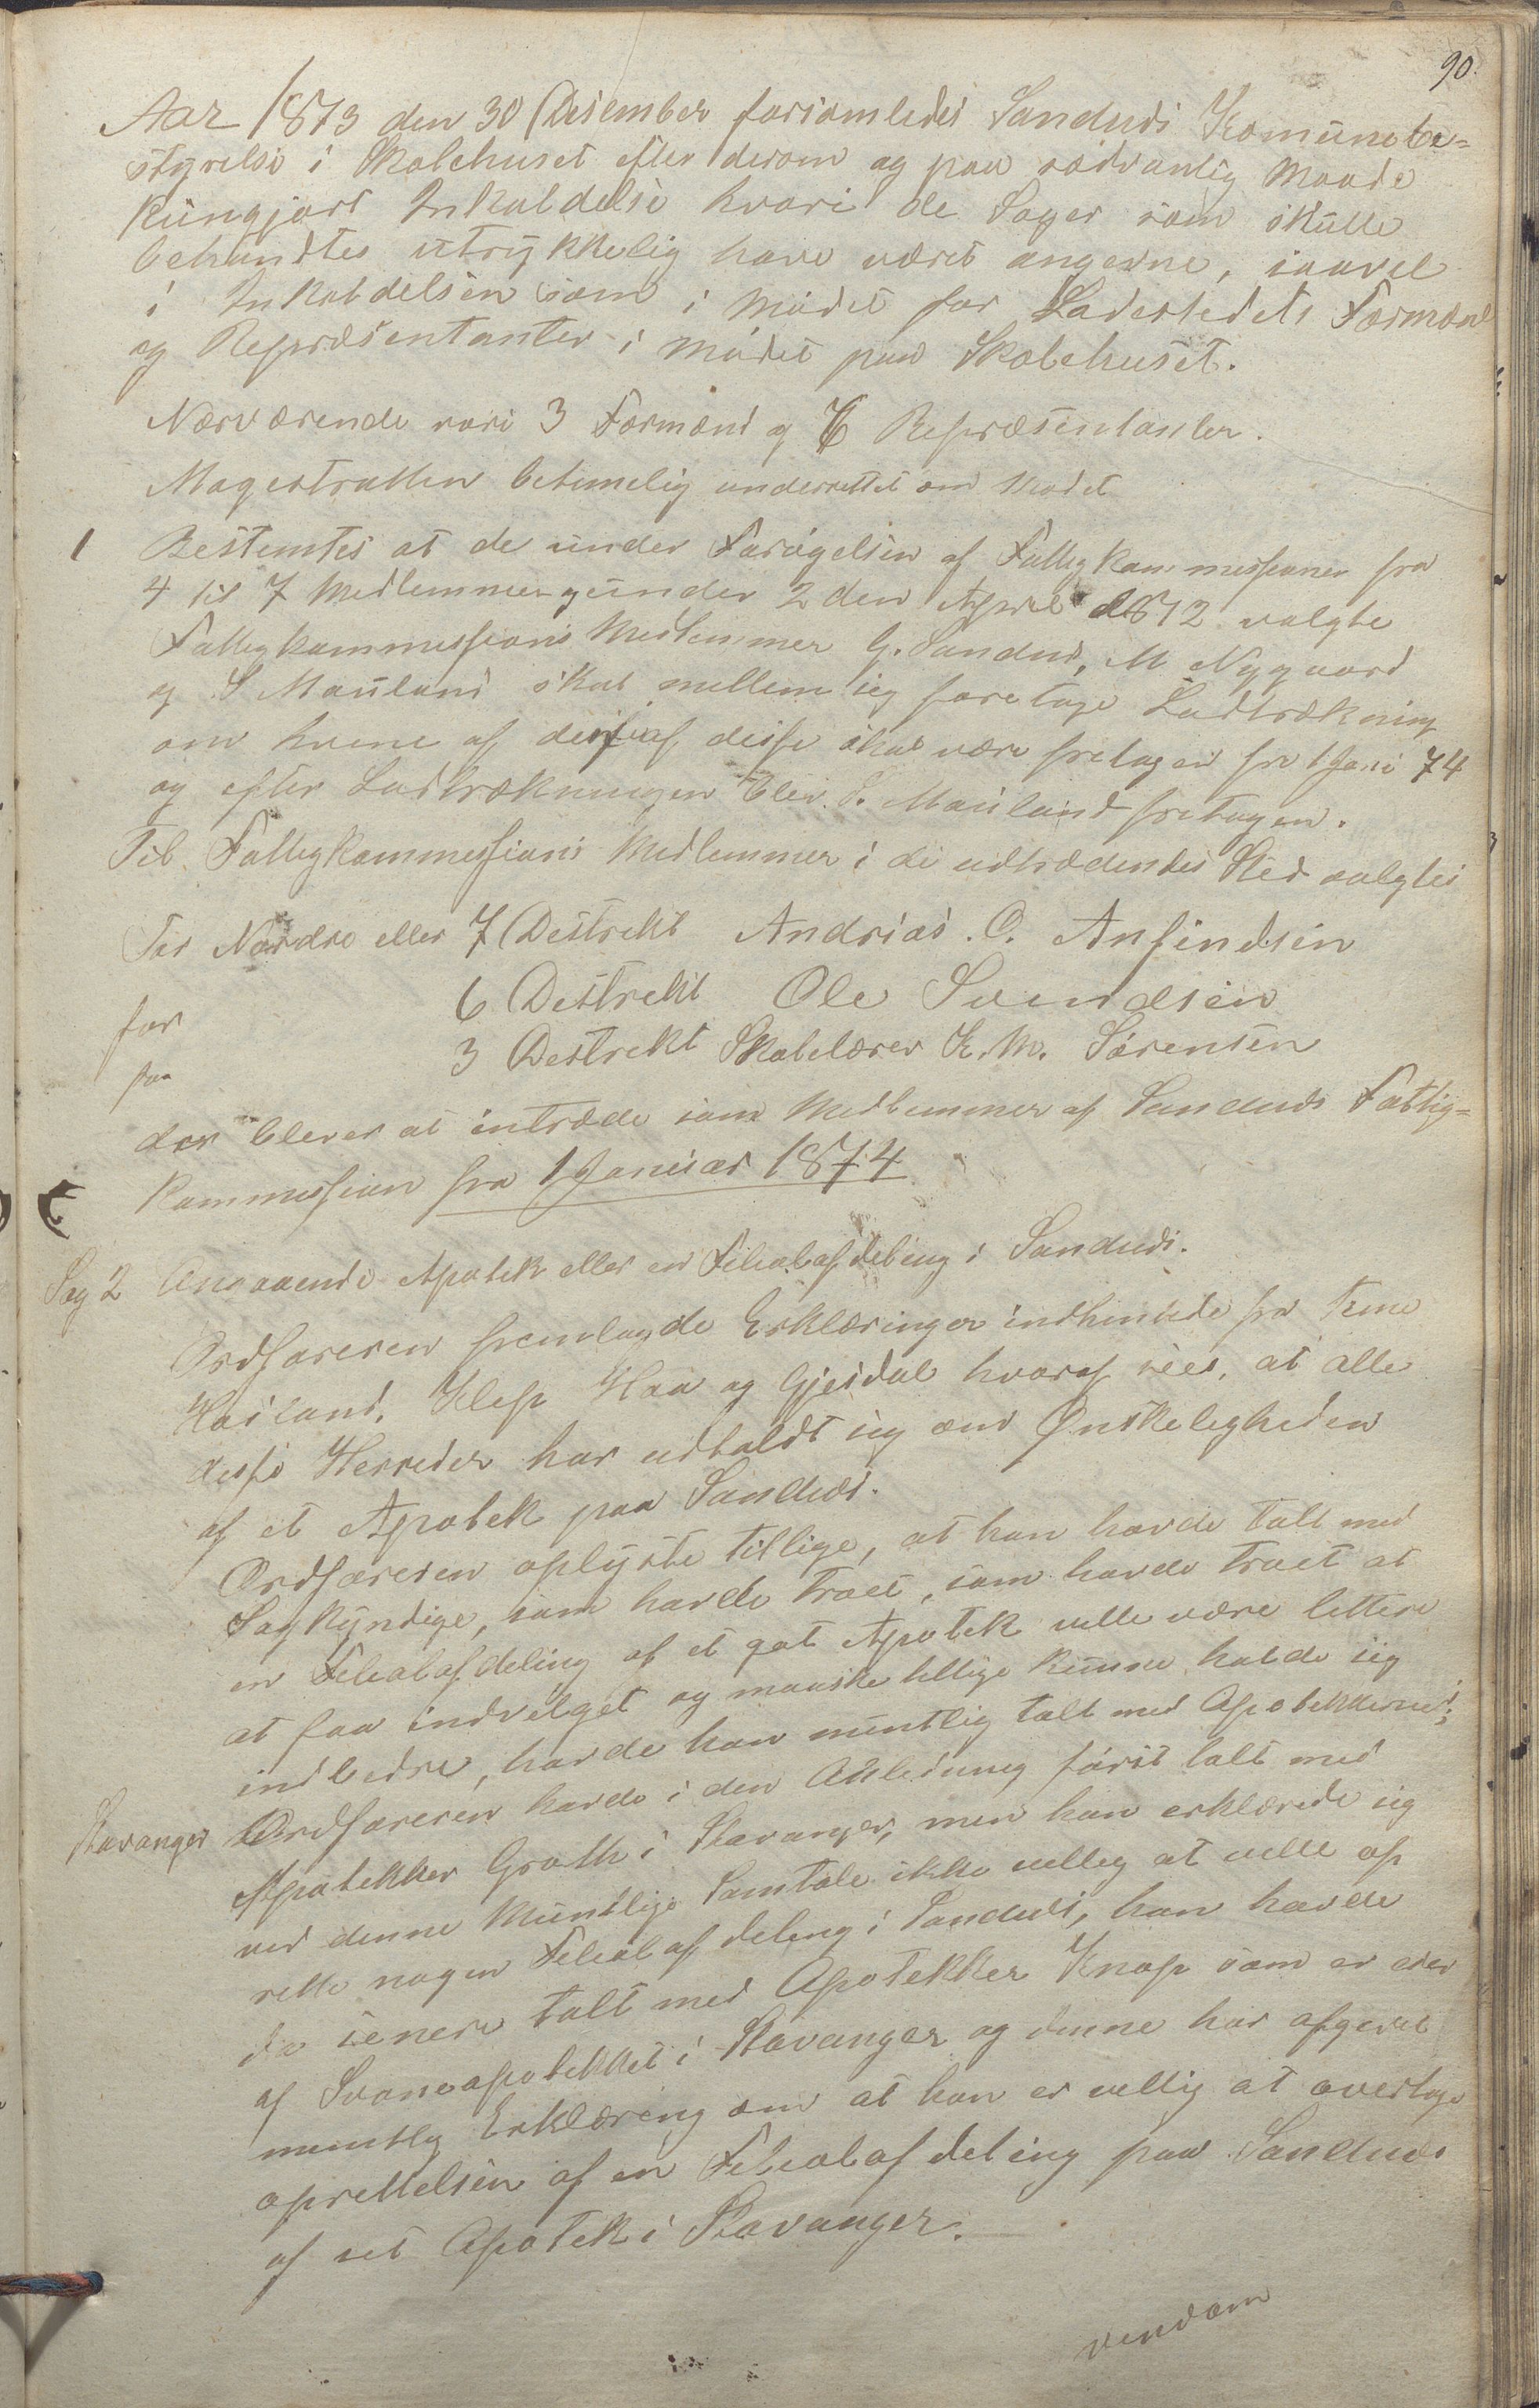 90.
Aar 1873 den 30 Desember forsamledes Sandnæs Komunebe=
styrelse i Skolehuset efter derom og paa sædvanlig Maade
kungjort Inkaldelse hvori de Sager som skulle
behandles utrykkelig have været angevne, saavel
i Inkaldelsen som i Mødet for Ladestedets Formænd
og Repræsentanter i Mødet paa Skolehuset.
Nærværende vare 3 Formænd og 6 Repræsentanter.
Magestratten betimelig underrettet om Mødet
1 Bestemtes at de under Forøgelsen af Fattigkommissionen fra
4 til 7 Medlemmer under 2den April 1872 valgte
Fattigkommissions Medlemmer G. Sandnæs, M Nygaard
og S Mauland skal mellem sig foretage Lodtrækning
om hvem af disse skal være fretagen fra 1 Jani 74
og efter Lodtrækningen blev S. Mauland fretagen.
Til Fattigkommissions Medlemmer i de udtrædendes Sted valgtes
For Nordre eller 7 Destrekt Andreas. O. Anfindsen
for 6 Destrekt Ole Svendsen
for 3 Destrekt Skolelærer K. M. Sørensen
der blever at intræde som Medlemmer af Sandnæs Fattig=
kommission fra 1 Januar 1874
Sag 2 Angaaende Apotek eller en Filealafdeling i Sandnæs.
Ordføreren fremlagde Erklæringer indhentede fra Time
Høiland, Klep Haa og Gjesdal hvoraf sees, at alle
disse Herreder har udtaldt sig om Ønskeligheden
af et Apotek paa Sandnæs.
Ordføreren oplyste tillige, at han havde talt med
Sagkyndige, som havde troet, som havde troet at
en Filealafdeling af et gat Apotek ville være lettere
at faa indvelget og maaske tillige kunne holde sig
indbedre, havde han muntlig talt med Apotekkerne i
Stavanger Ordføreren havde i den Anledning først talt med
Apotekker Groth i Stavanger, men han erklærede sig
ved denne Muntlige Samtale ikke villig at ville op
rette nogen Filealafdeling i Sandnæs, han havde
da senere talt med Apotekker Knap som er eier
af Svaneapotekket i Stavanger og denne har afgevet
muntlig Erklæring om at han er villig at overtage
oprettelsen af en Filealafdeling paa Sandnæs
af sit Apotek i Stavanger.
vendom